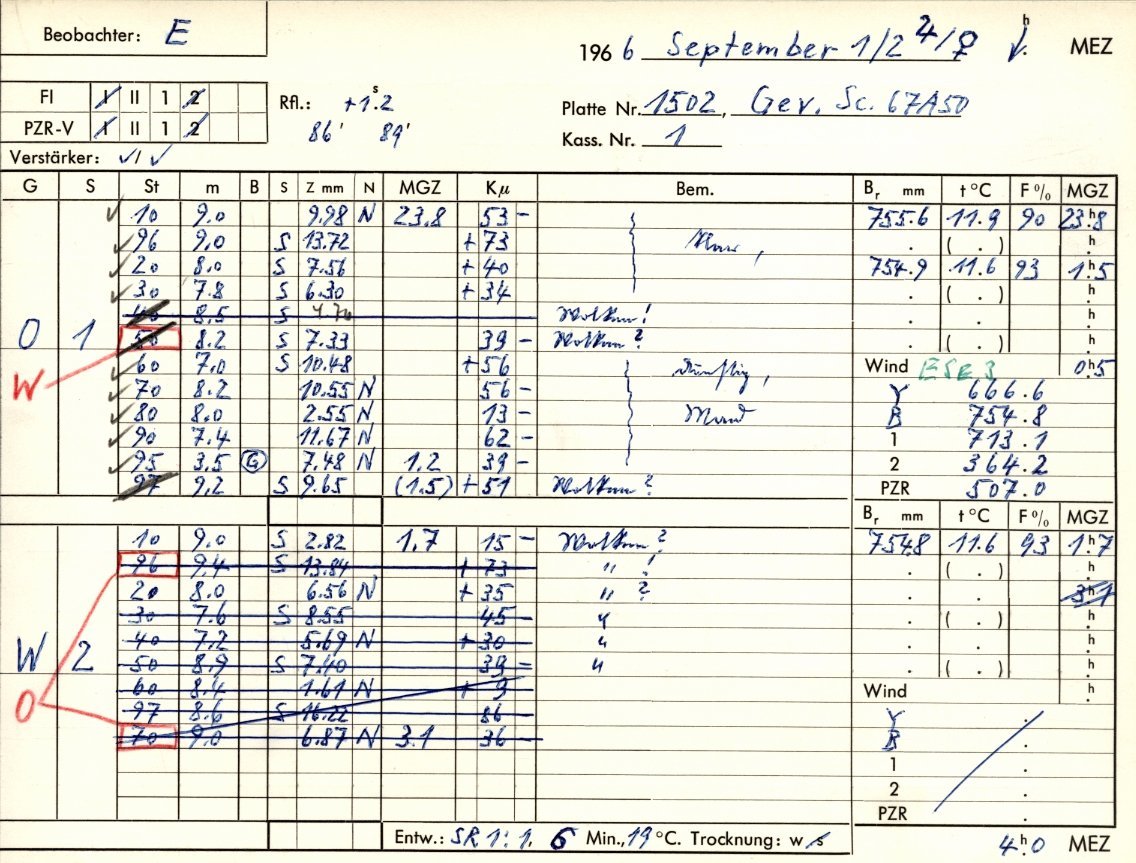 Beobachter: E
196 6 September 1/2 4/♀ h MEZ
FI I II 1 2
PZR-V I II 1 2
Rfl.: +1.ˢ2
86' 89'
Platte Nr. 1502, Gev. Sc. 67A50
Kass. Nr. 1
Verstärker: ✓/✓
G S St m B S Z mm N MGZ Kμ Bem. Bᵣ mm t °C F % MGZ
✓ 10 9.0 9.98 N 23.8 53 - 755.6 11.9 90 23.ʰ8
✓ 96 9.0 S 13.72 + 73 klar, . ( . ) ʰ
✓ 20 8.0 S 7.56 + 40 754.9 11.6 93 1.ʰ5
✓ 30 7.8 S 6.30 + 34 . ( . ) ʰ
40 8.5 S Wolken! . . ʰ
O 1 50 8.2 S 7.33 39 - Wolken? . ( . ) ʰ
W ✓ 60 7.0 S 10.48 + 56 dunstig, Wind ESE 3 0.ʰ5
✓ 70 8.2 10.55 N 56 - Y 666.6
✓ 80 8.0 2.55 N 13 - Mond B 754.8
✓ 90 7.4 11.67 N 62 - 1 713.1
✓ 95 3.5 G 7.48 N 1.2 39 - 2 364.2
97 9.2 S 9.65 (1.5) + 51 Wolken? PZR 507.0
Bᵣ mm t °C F % MGZ
10 9.0 S 2.82 1.7 15 - Wolken? 754.8 11.6 93 1.ʰ7
96 9.4 S 13.84 + 73 " ! . ( . ) ʰ
20 8.0 6.56 N + 35 " ? . . 3.ʰ1
30 7.6 S 8.55 45 - " . ( . ) ʰ
40 7.2 5.69 N + 30 " . . ʰ
W 2 50 8.9 S 7.40 39 - " . ( . ) ʰ
O 60 8.4 1.61 N + 9 Wind ʰ
97 8.6 S 16.22 86 - Y .
70 9.0 6.87 N 3.1 36 - B .
1 .
2 .
PZR .
Entw.: SR 1:1. 6 Min., 19 °C. Trocknung: w s
4ʰ0 MEZ